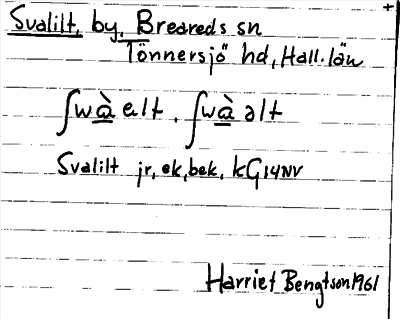 Svalilt, by, Breareds sn
Tönnersjö hd, Hall. län
ʃwà̱ elt . ʃwà̱ əlt
Svalilt jr, ek, bek, kG14NV
Harriet Bengtson 1961